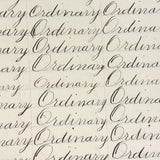 ary Ordinary Ordina
inary Ordinary Ordin
nary Ordinary Ordina
nary Ordinary Ordina
ary Ordinary Ordina
nary Ordinary Ordina
ary Ordinary Ordin
nary Ordinary Ordina